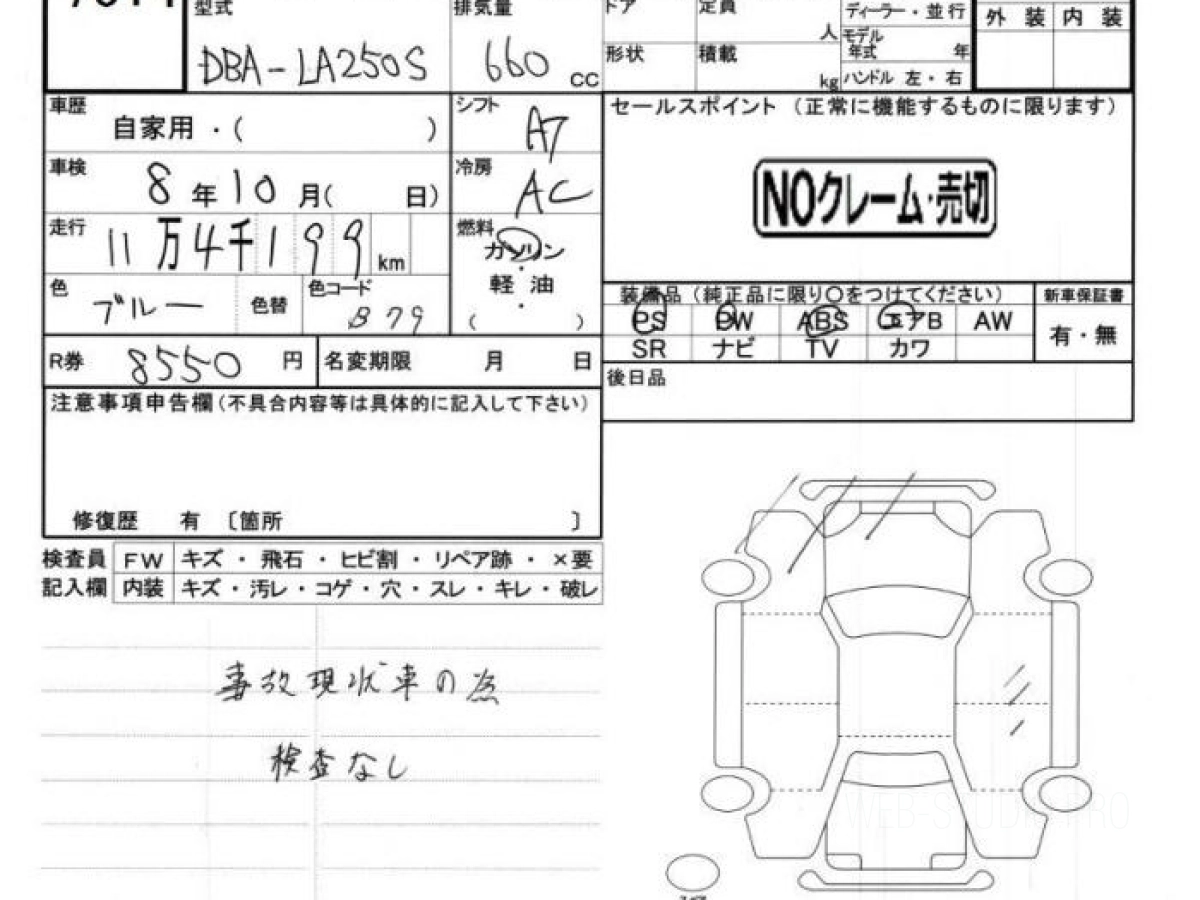 型式 排気量 ドア 定員 ディーラー・並行 外装 内装
DBA-LA250S 660 cc 形状 積載 人 モデル年式 年
kg ハンドル 左・右
車歴 自家用・( ) シフト AT セールスポイント(正常に機能するものに限ります)
車検 8年10月( 日) 冷房 AC
NOクレーム・売切
走行 11万4千199km 燃料 ガソリン
軽油
・
( )
色 ブルー 色替 色コード B79
装備品(純正品に限り○をつけてください) 新車保証書
PS PW ABS エアB AW 有・無
SR ナビ TV カワ
R券 8550円 名変期限 月 日
後日品
注意事項申告欄(不具合内容等は具体的に記入して下さい)
修復歴 有 〔箇所 〕
検査員 FW キズ・飛石・ヒビ割・リペア跡・×要
記入欄 内装 キズ・汚レ・コゲ・穴・スレ・キレ・破レ
事故現状車の為
検査なし